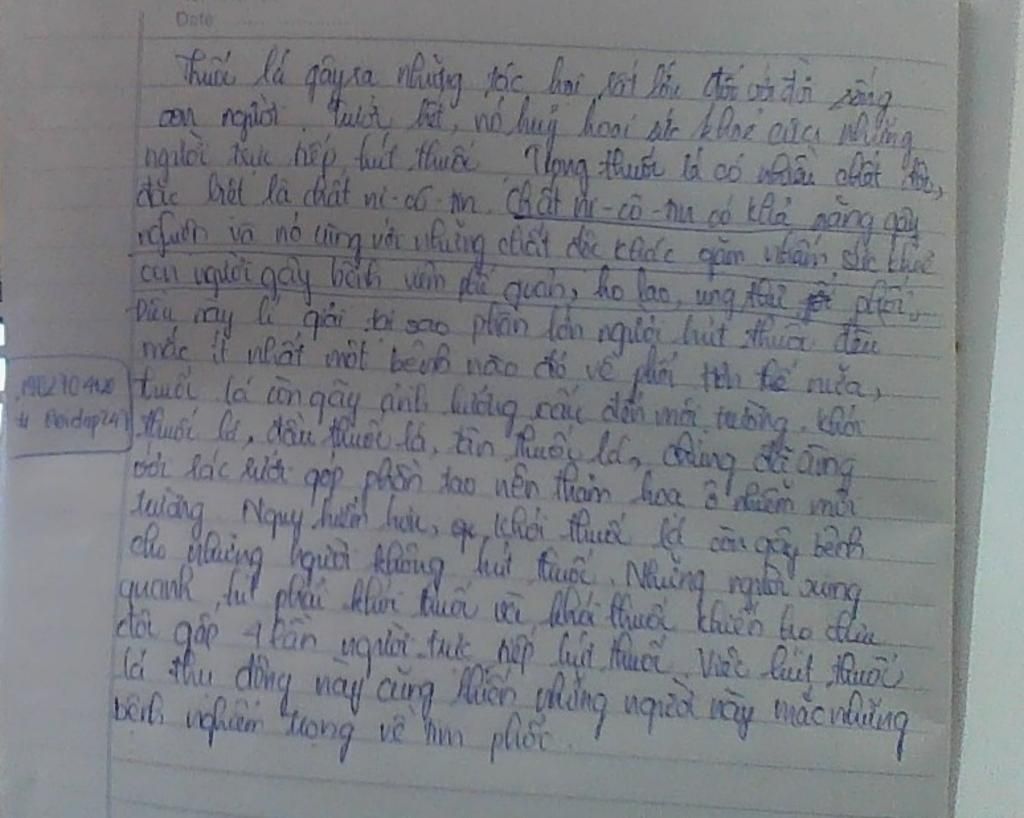 Date
Thuốc lá gây ra những tác hại rất lớn đối với đời sống
con người. Trước hết, nó huỷ hoại sức khoẻ của những
người trực tiếp hút thuốc. Trong thuốc lá có nhiều chất độc,
đặc biệt là chất ni-cô-tin. Chất ni-cô-tin có khả năng gây
nghiện và nó cùng với những chất độc khác gặm nhấm sức khoẻ
con người gây bệnh viêm phế quản, ho lao, ung thư phổi.
Điều này lí giải tại sao phần lớn người hút thuốc đều
mắc ít nhất một bệnh nào đó về phổi. Hơn thế nữa,
thuốc lá còn gây ảnh hưởng xấu đến môi trường. Khói
thuốc lá, đầu thuốc lá, tàn thuốc lá, chúng đã cùng
với rác rưởi góp phần tạo nên thảm hoạ ô nhiễm môi
trường. Nguy hiểm hơn, khói thuốc lá còn gây bệnh
cho những người không hút thuốc. Những người xung
quanh hít phải khói thuốc và khói thuốc khiến họ
gấp 4 lần người trực tiếp hút thuốc. Việc hút thuốc
lá thụ động này cũng khiến những người này mắc những
bệnh nghiêm trọng về tim phổi.